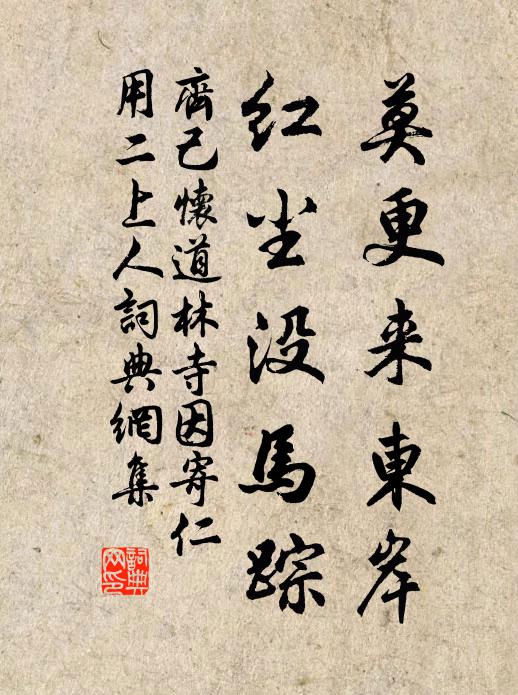 莫更来東岸
红尘没馬踪
齊己懷道林寺因寄仁
用二上人詞典網集
詞典
网印